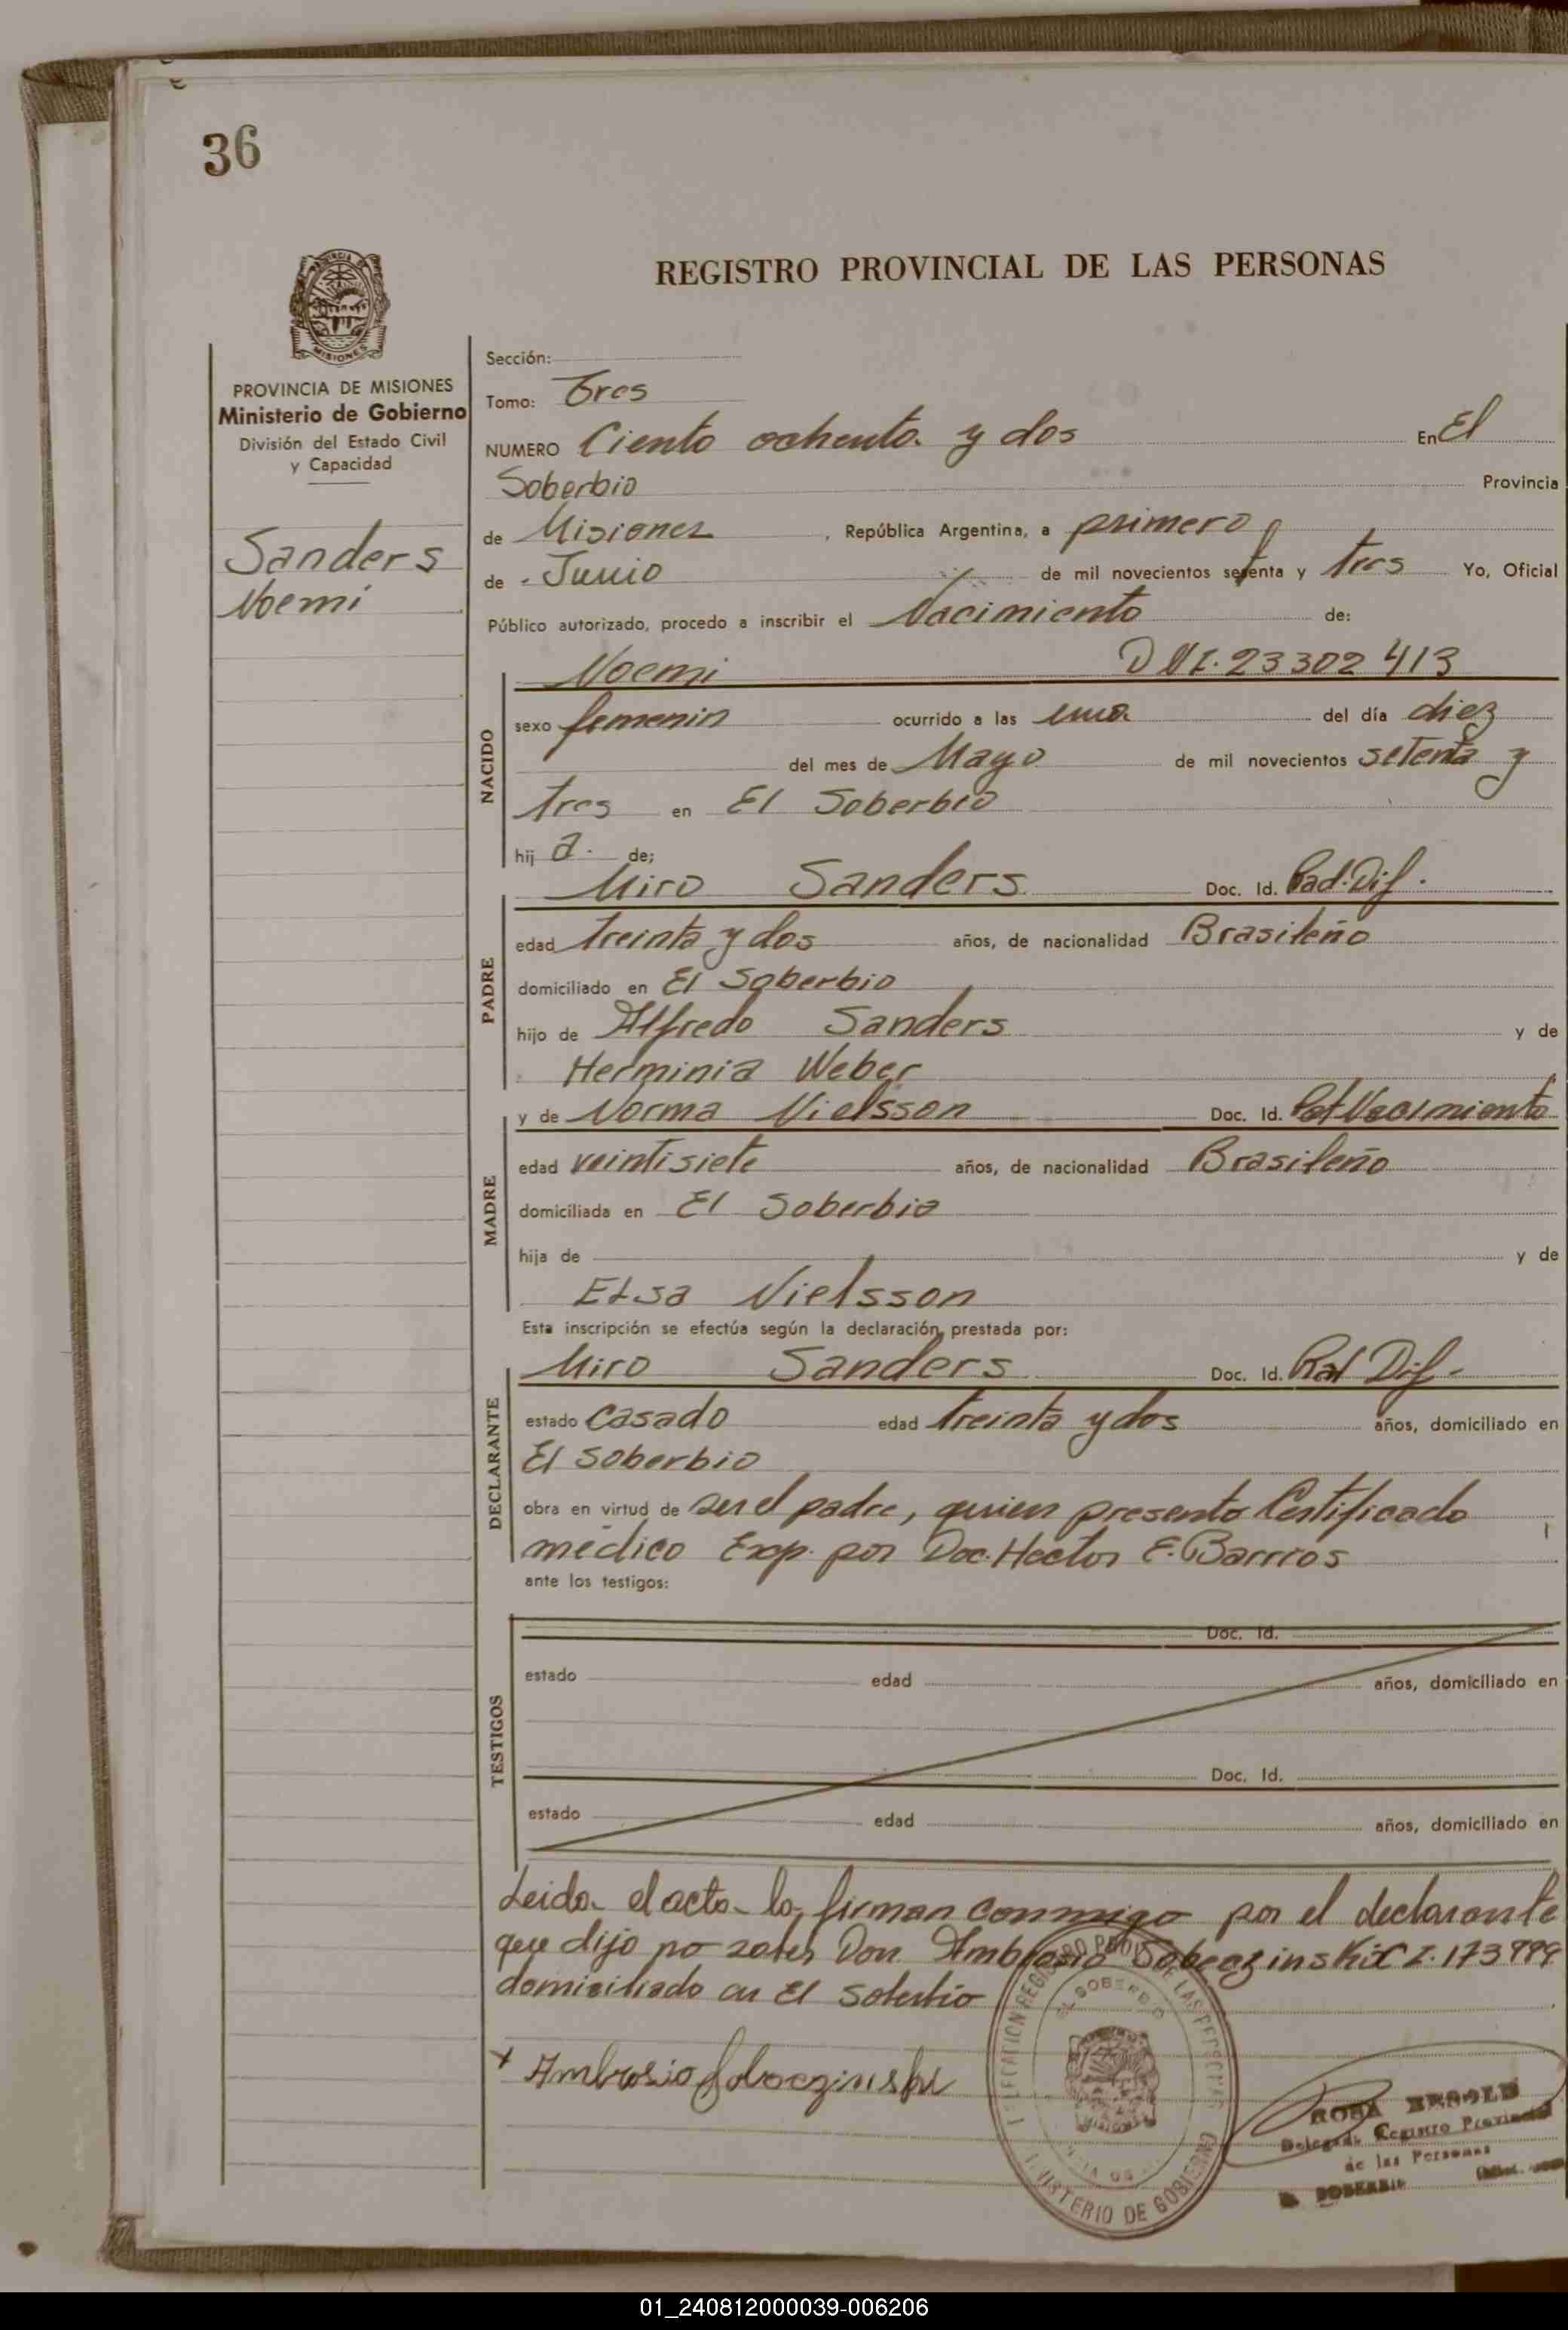 36
REGISTRO PROVINCIAL DE LAS PERSONAS
PROVINCIA DE MISIONES
Ministerio de Gobierno
División del Estado Civil
y Capacidad
Sanders
Noemi
Sección:
Tomo: Tres
NUMERO Ciento ochenta y dos En El
Soberbio Provincia
de Misiones, República Argentina, a primero
de Junio de mil novecientos setenta y tres Yo, Oficial
Público autorizado, procedo a inscribir el Nacimiento de:
NACIDO
Noemi DNI. 23302413
sexo femenin ocurrido a las una del día diez
del mes de Mayo de mil novecientos setenta y
tres en El Soberbio
hij a. de;
PADRE
Miro Sanders Doc. Id. Rad. Dif.
edad treinta y dos años, de nacionalidad Brasileño
domiciliado en El Soberbio
hijo de Alfredo Sanders y de
Herminia Weber
MADRE
y de Norma Nielsson Doc. Id. Nacimiento
edad veintisiete años, de nacionalidad Brasileño
domiciliada en El Soberbio
hija de y de
Elsa Nielsson
Esta inscripción se efectúa según la declaración prestada por:
DECLARANTE
Miro Sanders Doc. Id. Dif.
estado casado edad treinta y dos años, domiciliado en
El Soberbio
obra en virtud de ser el padre, quien presento Certificado
médico Exp. por Doc. Hector E. Barrios
ante los testigos:
TESTIGOS
Doc. Id.
estado edad años, domiciliado en
Doc. Id.
estado edad años, domiciliado en
Leida el acta la firman conmigo por el declarante
que dijo no Don Ambrosio C I. 173999
domiciliado en El Soberbio
Ambrosio
EL SOBERBIO
MISIONES
MINISTERIO DE GOBIERNO
ROSA
Delegada Registro Provincial
de las Personas
SOBERBIO
01_240812000039-006206